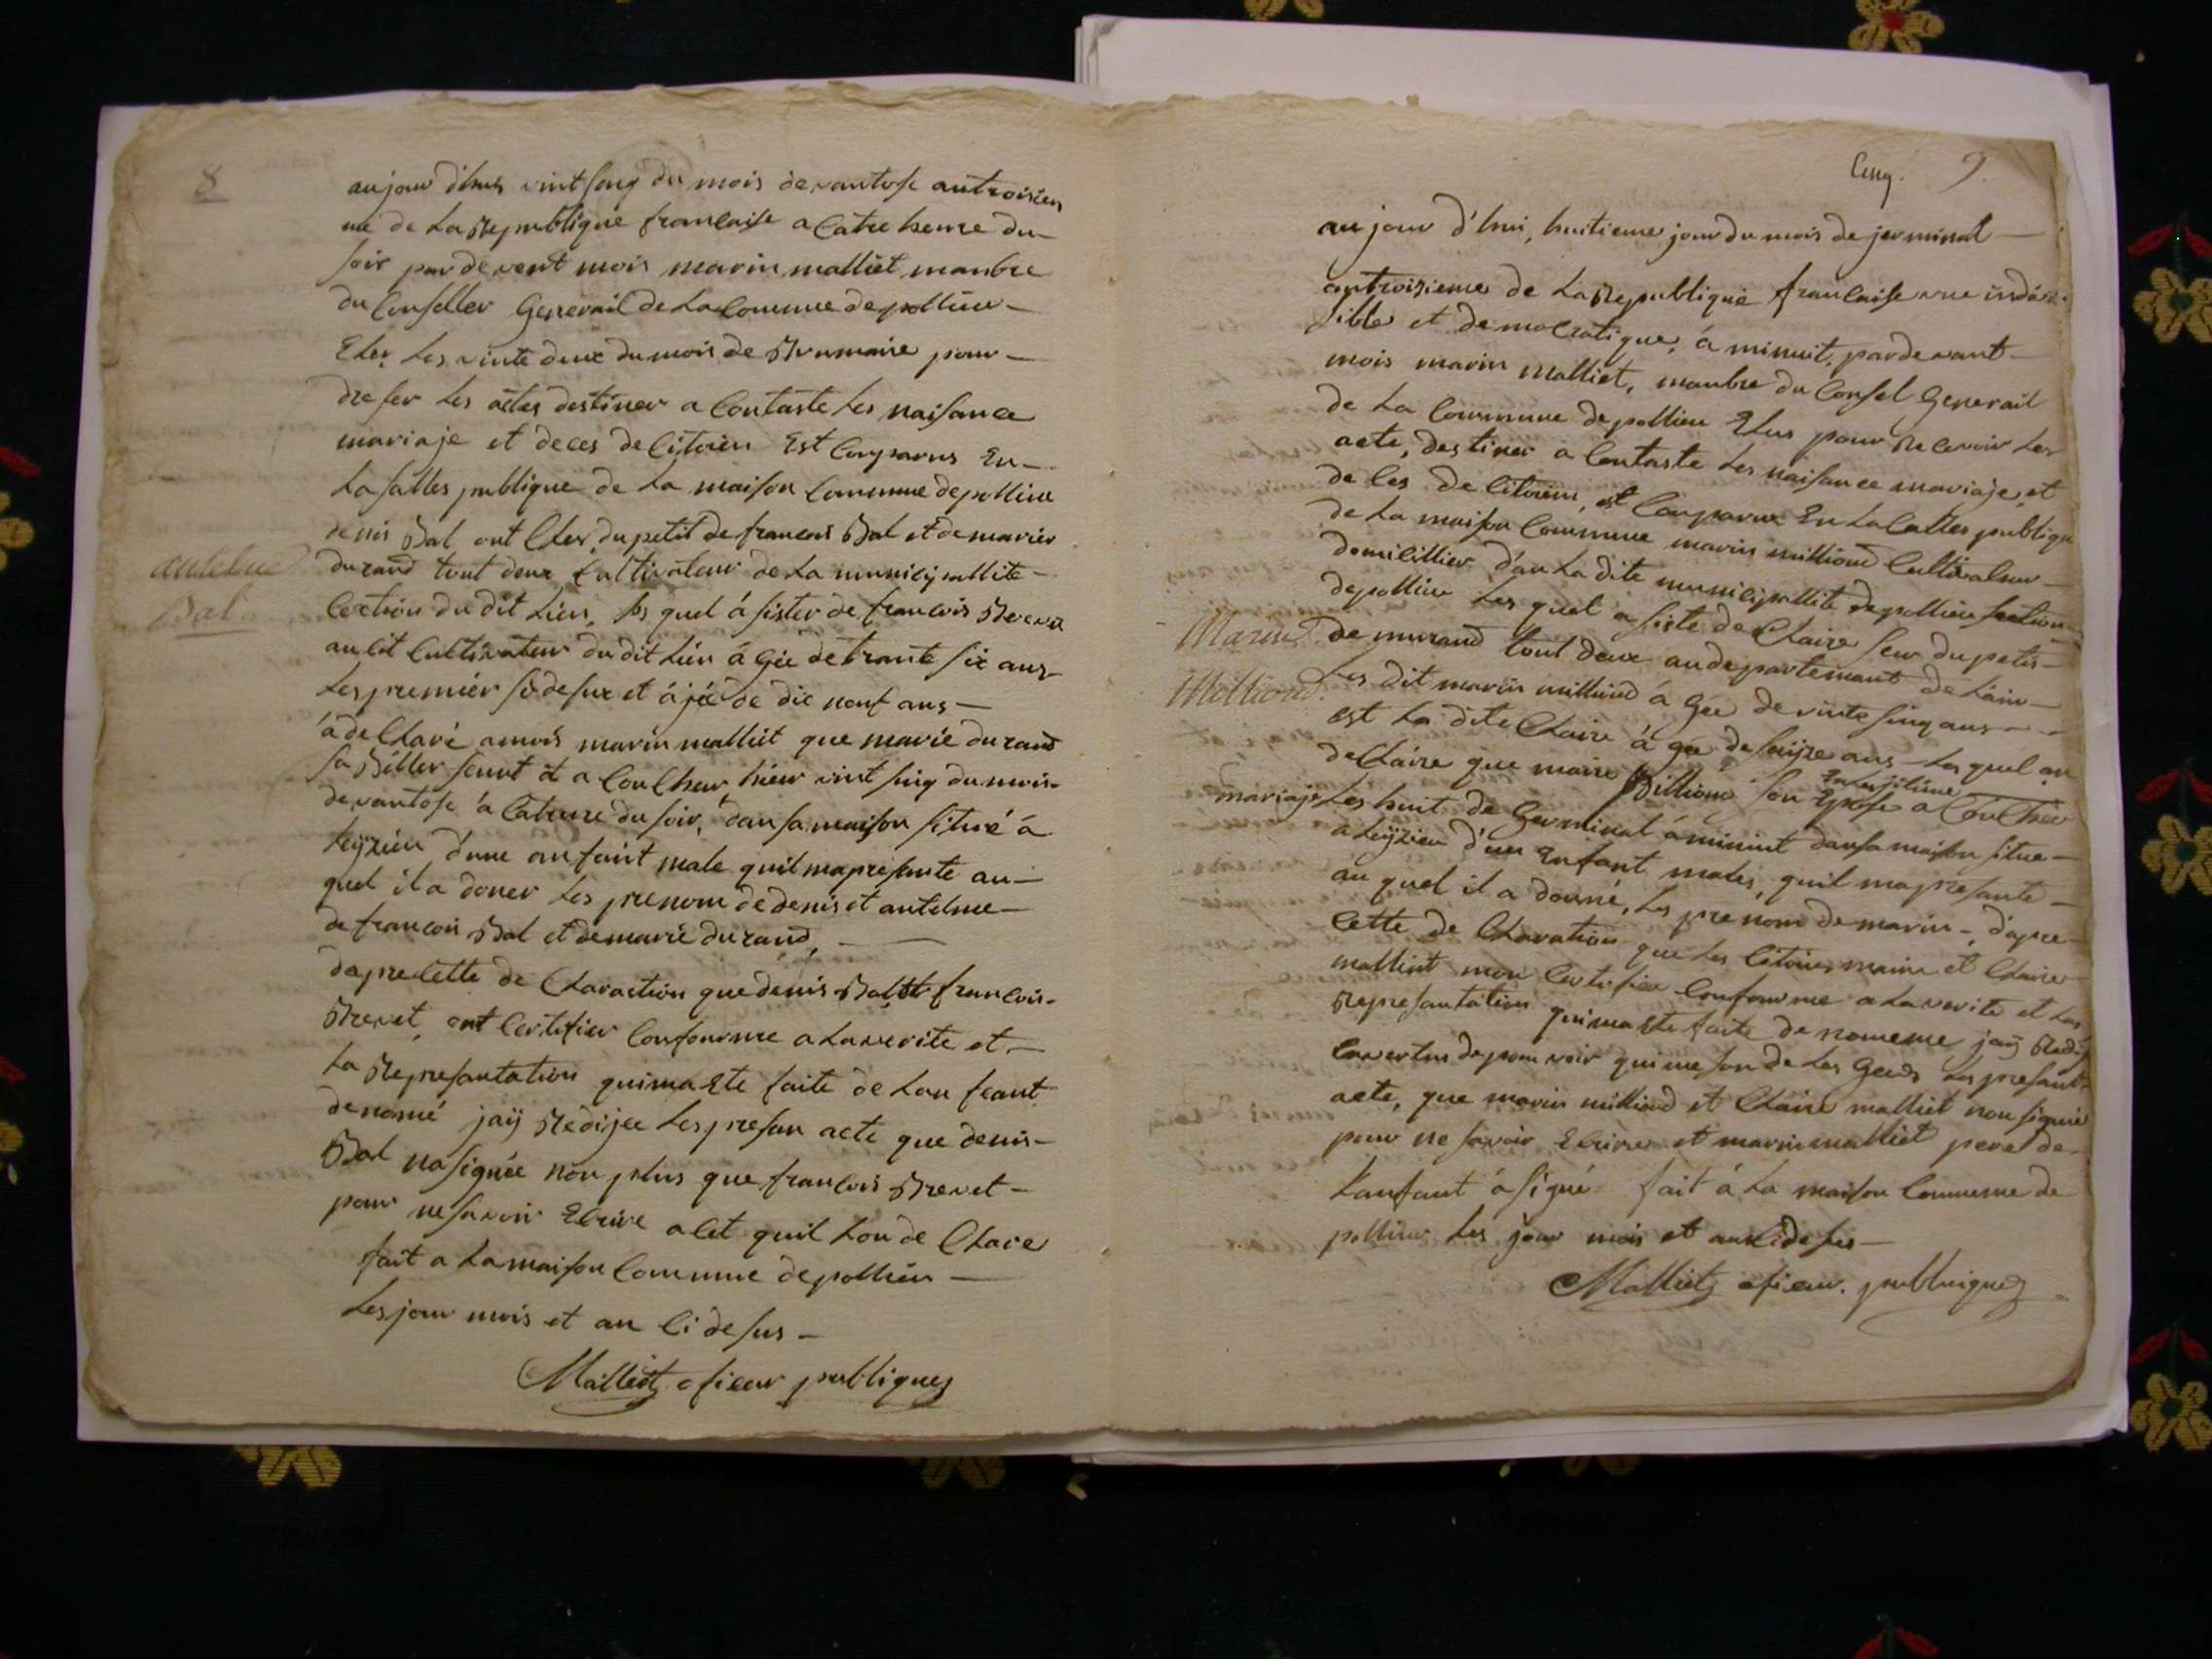 8
aujour dhus vint sing du mois de vantose antroisien
me de La Republique francaise a Catre heure du
soir par devent mois marin malliet manbre
du Conseller Generail de La Commune de pollieu
Eler Les vinte deux du mois de Brumaire pour
dreser Les actes destiner a Contaste Les naisance
mariaje et deces de Citoien Est Conparus En
La salles publique de La maison Commune de pollieu
denis Bal ont Cler du petit de francois Bal et de marier
durand tout deux Cultivateur de La municipallite
Cection du dit Lieu, Les quel á sister de francois Brevet
aucit Cultivateur du dit Lieu á gée de trante six ans
Les premiér si desus et ájée de dix neuf ans
á de Claré a mois marin malliet que marie durand
sa Béller seurt et a Couchever hier vint sing du mois
de vantose a Cature du soir, dans sa maison situé á
Leÿzieu d'une anfaint male quil ma presante au
quel il a doner Les prenom de denis et antelme
de francois Bal et de marie durand,
antelme
Bal
dapre Cette de Claraction que denis Bal et francois
Brevet ont Certifier Confourme a La verite et
La Represantation qui ma Ete faite de Lan feant
denomé jaÿ Redijee Les presan acte que denis
Bal na signée non plus que francois Brevet
pour ne savoir Ecrire a Cet quil Lon de Clare
fait a La maison Commune de pollieu
Les jour mois et an Ci desus
Malliet ofieur publiques
9
aujour d'hui, huitieme jour du mois de jerminal
antroisieme de La Republique francaise une indivi
sible et democratique, á minuit, par devant
mois marin Malliet, manbre du Consel Generail
de La Commune de pollieu Elus pour Recevoir Les
acte, destiner a Contaste Les naisance mariaje, et
de Ces de Citoien, et Conparux En La Calles publique
de La maison Commune marin milliond Cultivateur
domicillier dan La dite municipallite de pollieu section
de pollieu Les quel a siste de Claire seur du petis
de murand tout deux au departemant de Lain
Les dit marin milliond á gée de vinte sinq ans
est La dite Claire á gée de saize ans Les quel on
de Claire que marie Billiond son Epose a Coucher
Enlesjitime
Les huit de Germinal á minint dans sa maison situe
a Leÿzieu d'un Enfant males, quil ma presante
au quel il a donné, Les prenom de marin d'apre
Marin
Milliond
mariaje
Cette de Claration que Les Citoien marin et Claire
malliet mon Certifier Confourme a La verite et Les
Represantation qui ma Ete faite de nomeme jaÿ Redij
en vertus de pouvoir qui me son de Les Gues Les presant
acte, que marin milliond et Claire malliet non signié
pour ne savoir Ecrire et marin malliet pere de
Lanfant á signé fait á La maison Commune de
pollieu Les jour mois et an Ci desus
Malliet ofieur publuiques